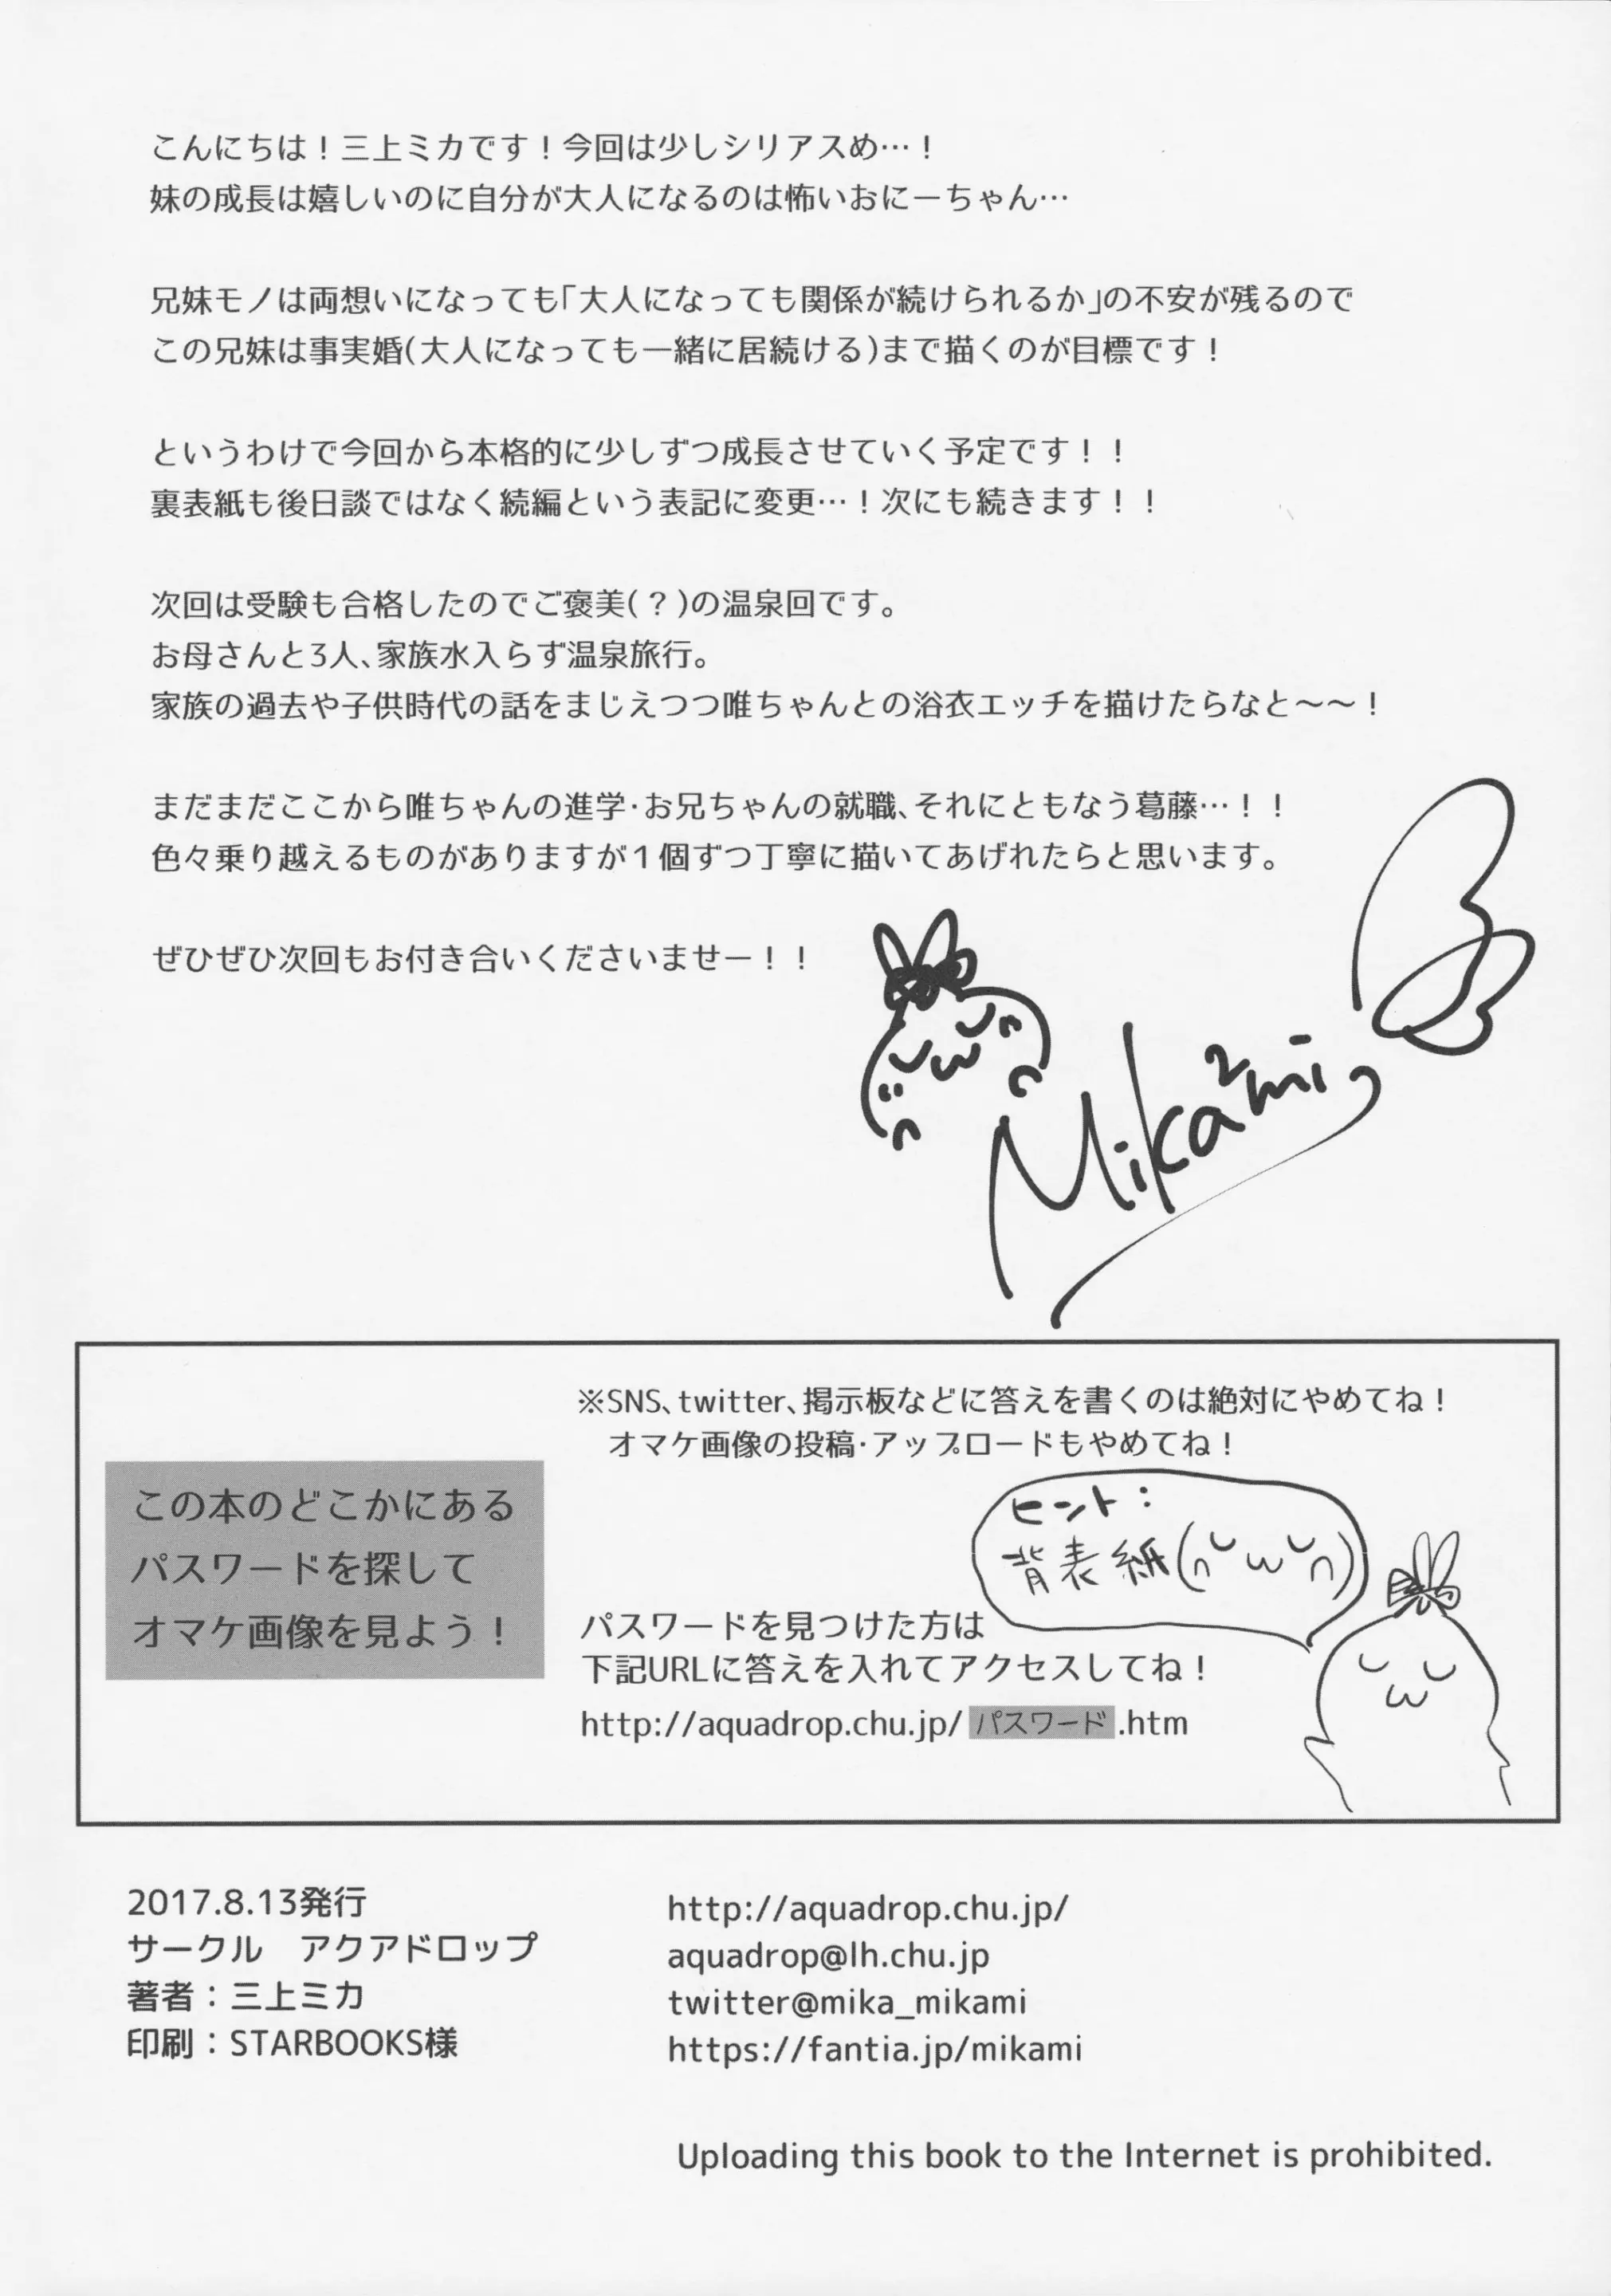 こんにちは！三上ミカです！今回は少しシリアスめ…！
妹の成長は嬉しいのに自分が大人になるのは怖いおにーちゃん…
兄妹モノは両想いになっても「大人になっても関係が続けられるか」の不安が残るので
この兄妹は事実婚(大人になっても一緒に居続ける)まで描くのが目標です！
というわけで今回から本格的に少しずつ成長させていく予定です！！
裏表紙も後日談ではなく続編という表記に変更…！次にも続きます！！
次回は受験も合格したのでご褒美(？)の温泉回です。
お母さんと3人、家族水入らず温泉旅行。
家族の過去や子供時代の話をまじえつつ唯ちゃんとの浴衣エッチを描けたらなと〜〜！
まだまだここから唯ちゃんの進学・お兄ちゃんの就職、それにともなう葛藤…！！
色々乗り越えるものがありますが１個ずつ丁寧に描いてあげれたらと思います。
ぜひぜひ次回もお付き合いくださいませー！！
Mika2mi
※SNS、twitter、掲示板などに答えを書くのは絶対にやめてね！
オマケ画像の投稿・アップロードもやめてね！
この本のどこかにある
パスワードを探して
オマケ画像を見よう！
ヒント：
背表紙(∩˘ω˘∩)
パスワードを見つけた方は
下記URLに答えを入れてアクセスしてね！
http://aquadrop.chu.jp/ パスワード .htm
2017.8.13発行
サークル　アクアドロップ
著者：三上ミカ
印刷：STARBOOKS様
http://aquadrop.chu.jp/
aquadrop@lh.chu.jp
twitter@mika_mikami
https://fantia.jp/mikami
Uploading this book to the Internet is prohibited.